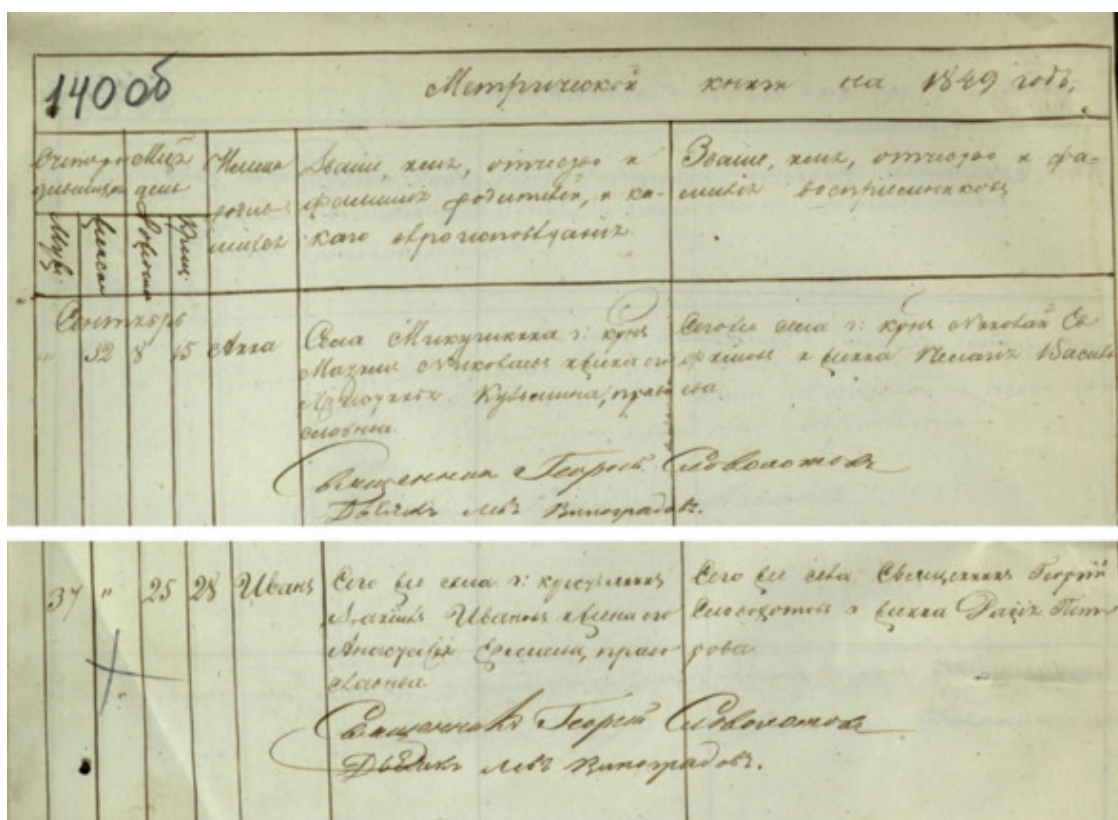 140 об
Метрической книги на 1849 годъ,
Мѣся
день
Имена
родив
шихся
Званіе, имя, отчество и
фамилія родителей, и ка-
каго вѣроисповѣданія
Званіе, имя, отчество и фа-
милія воспріемниковъ
Муж:
женск
Рожденія
Крещ:
Сентябрь
" 32 8 15 Анна
Села г: крѣн
Николаевъ и жена его
Кузьмина, право
славные.
Тогоже села г: крѣн Николай Еѳ
фимовъ и жена Пелагія Василь
ева.
Священникъ Георгій Словохотовъ
Дьячекъ Левъ Виноградовъ.
37 " 25 28 Иванъ
Сего же села г: крестьянинъ
Ивановъ и жена его
Анастасія право
славные
Сего же села Священникъ Георгій
Словохотовъ и жена Дарія Пет
рова
Священникъ Георгій Словохотовъ
Дьячекъ Левъ Виноградовъ.